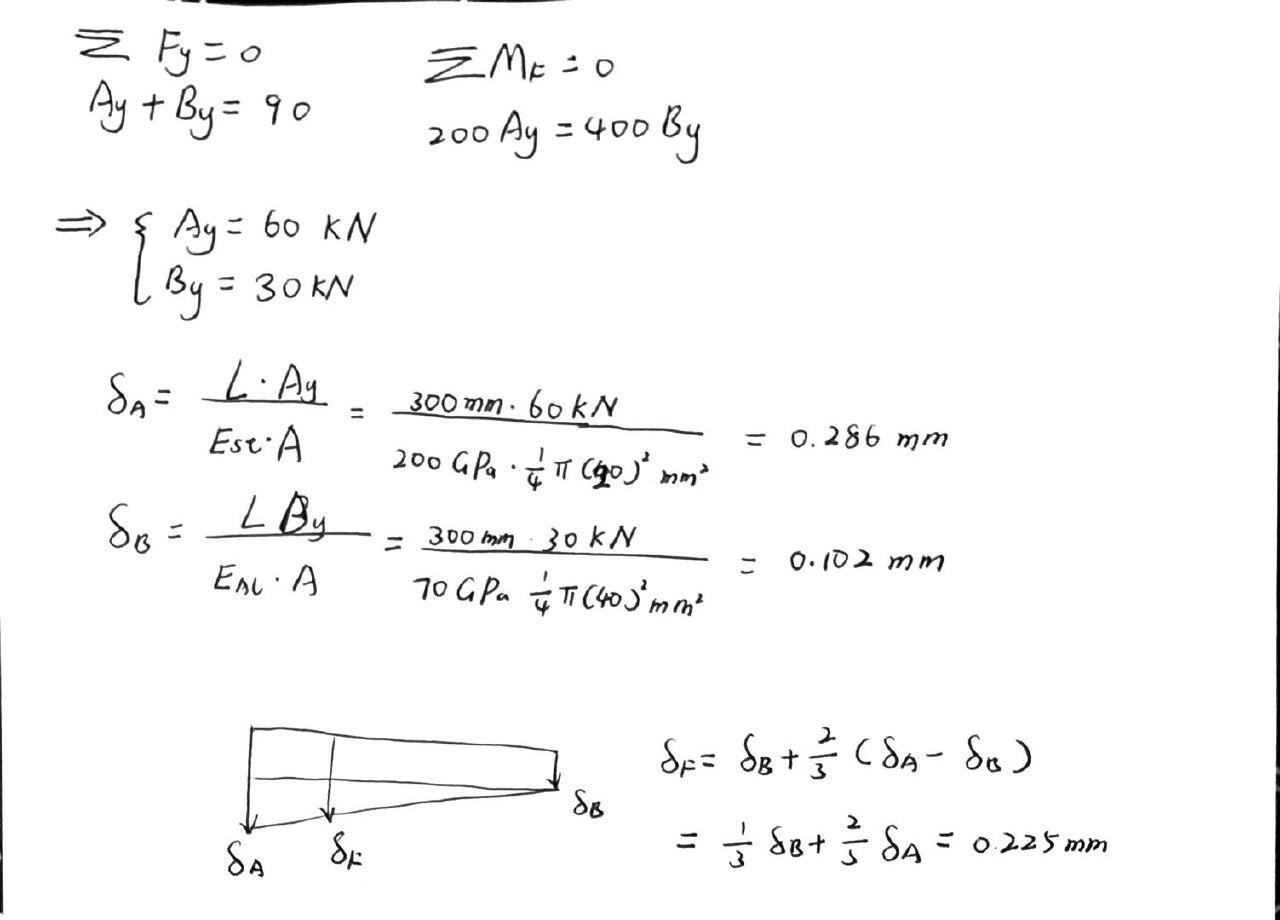 Σ Fy = 0
Ay + By = 90
Σ M_F = 0
200 Ay = 400 By
⇒ { Ay = 60 KN
By = 30 KN
δ_A = L · Ay / Est · A = 300 mm · 60 KN / 200 GPa · 1/4 π (20)² mm² = 0.286 mm
δ_B = L By / E_AL · A = 300 mm · 30 KN / 70 GPa 1/4 π (40)² mm² = 0.102 mm
δ_A
δ_F
δ_B
δ_F = δ_B + 2/3 (δ_A - δ_B)
= 1/3 δ_B + 2/3 δ_A = 0.225 mm